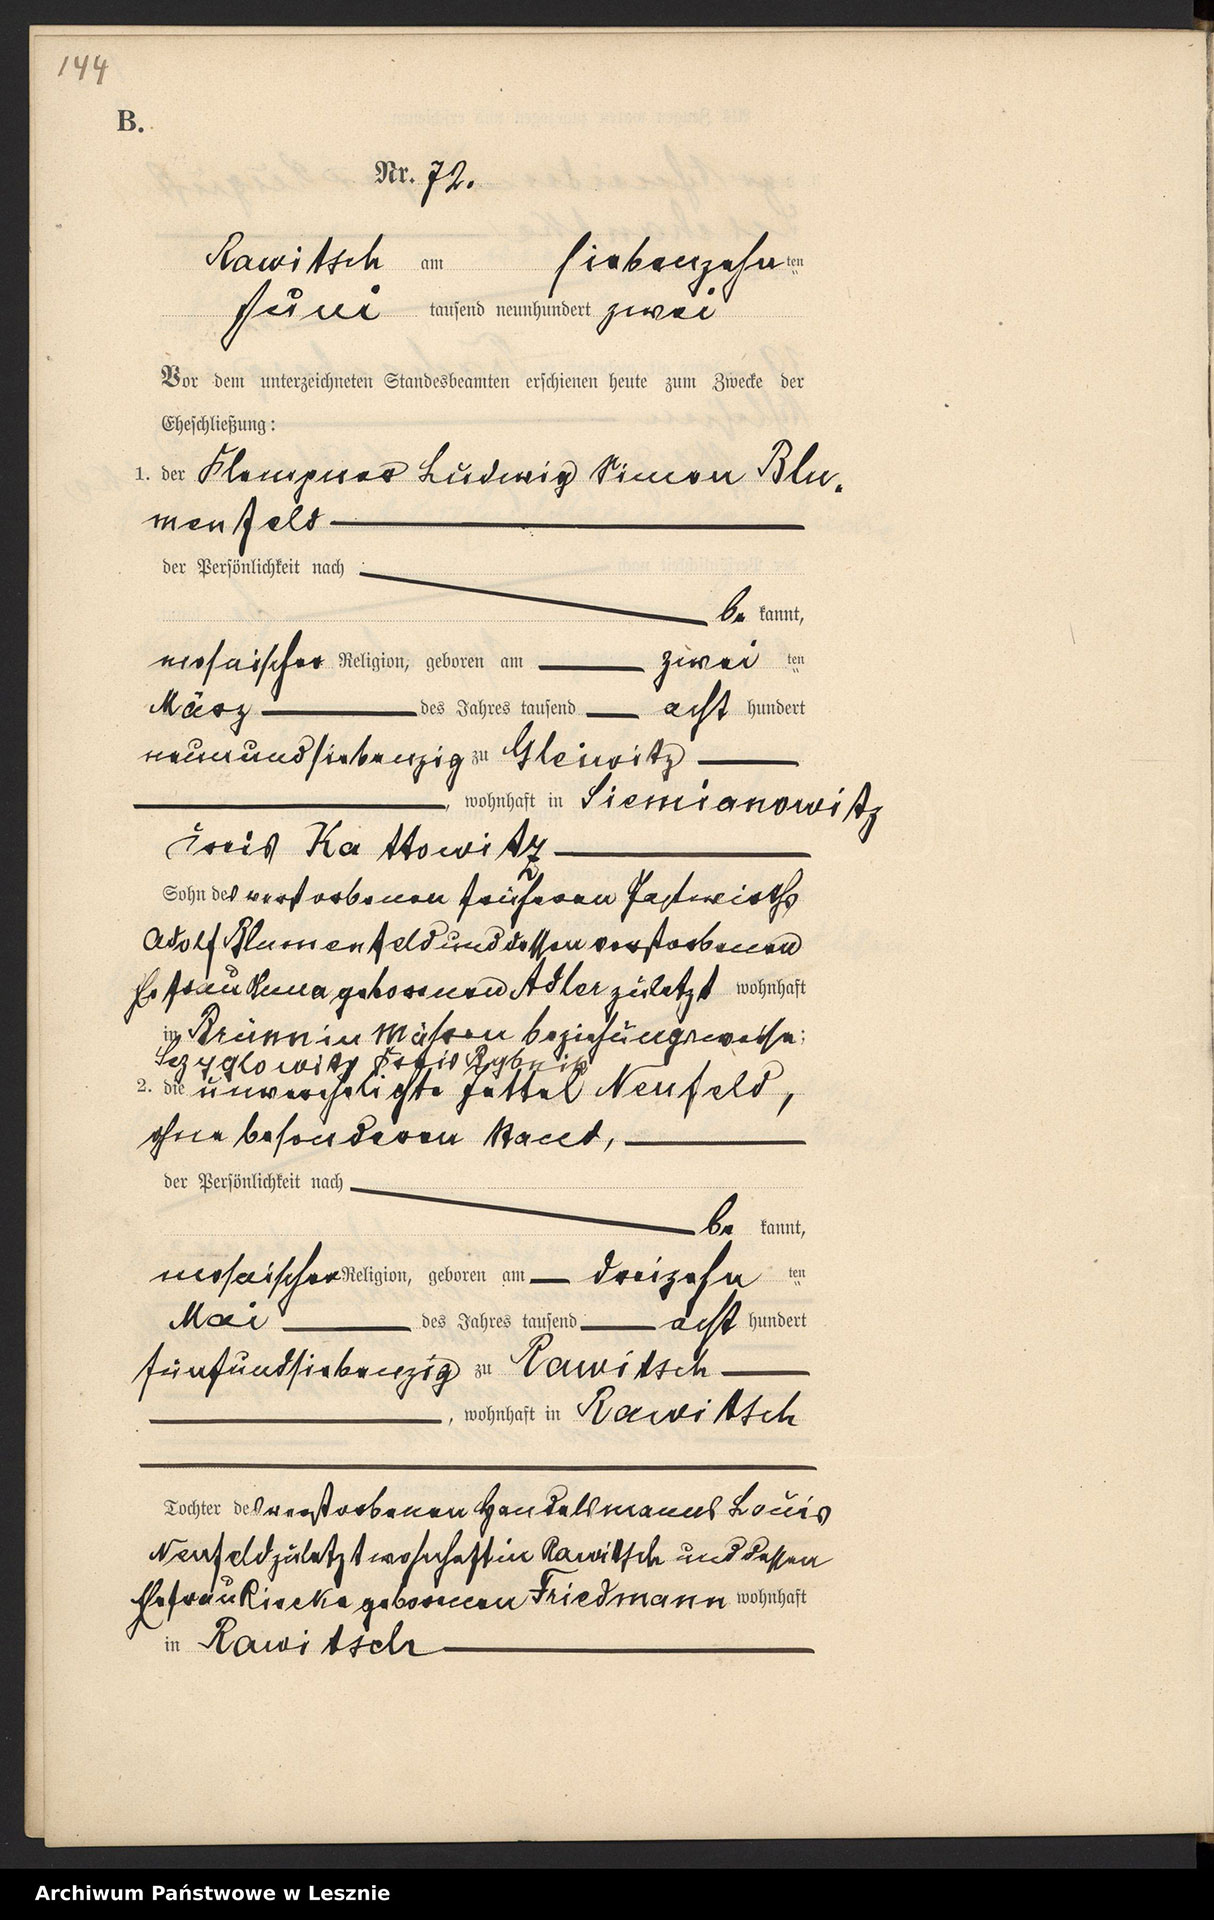 144
B.
Nr. 72.
Rawitsch am siebenzehnten
Juni tausend neunhundert zwei
Vor dem unterzeichneten Standesbeamten erschienen heute zum Zwecke der
Eheschließung:
1. der Klempner Ludwig Simon Blu-
menfeld
der Persönlichkeit nach
be kannt,
mosaischer Religion, geboren am zwei ten
März des Jahres tausend acht hundert
neunundsiebenzig zu Gleiwitz
, wohnhaft in Siemianowitz
Kreis Kattowitz
Sohn des verstorbenen früheren Gastwirths
Adolf Blumenfeld und dessen verstorbenen
Ehefrau Anna geborenen Adler zuletzt wohnhaft
in Brünn in Mähren beziehungsweise
Czyglowitz Kreis Rybnik
2. die unverehelichte Jettel Neufeld,
ohne besonderen Stand,
der Persönlichkeit nach
be kannt,
mosaischer Religion, geboren am dreizehn ten
Mai des Jahres tausend acht hundert
fünfundsiebenzig zu Rawitsch
, wohnhaft in Rawitsch
Tochter des verstorbenen Handelsmanns Louis
Neufeld zuletzt wohnhaft in Rawitsch und dessen
Ehefrau Riecke geborenen Friedmann wohnhaft
in Rawitsch
Archiwum Państwowe w Lesznie